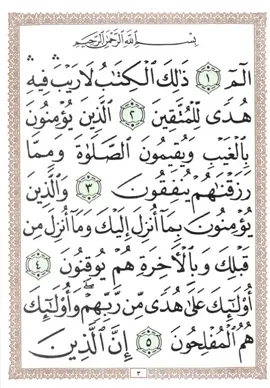 بِسْمِ اللَّهِ الرَّحْمَٰنِ الرَّحِيمِ
الٓمٓ ١ ذَٰلِكَ الْكِتَٰبُ لَا رَيْبَ ۛ فِيهِ ۛ
هُدًى لِّلْمُتَّقِينَ ٢ الَّذِينَ يُؤْمِنُونَ
بِالْغَيْبِ وَيُقِيمُونَ الصَّلَوٰةَ وَمِمَّا
رَزَقْنَٰهُمْ يُنفِقُونَ ٣ وَالَّذِينَ
يُؤْمِنُونَ بِمَا أُنزِلَ إِلَيْكَ وَمَا أُنزِلَ مِن
قَبْلِكَ وَبِالْأٓخِرَةِ هُمْ يُوقِنُونَ ٤
أُو۟لَٰٓئِكَ عَلَىٰ هُدًى مِّن رَّبِّهِمْ ۖ وَأُو۟لَٰٓئِكَ
هُمُ الْمُفْلِحُونَ ٥ إِنَّ الَّذِينَ
٣